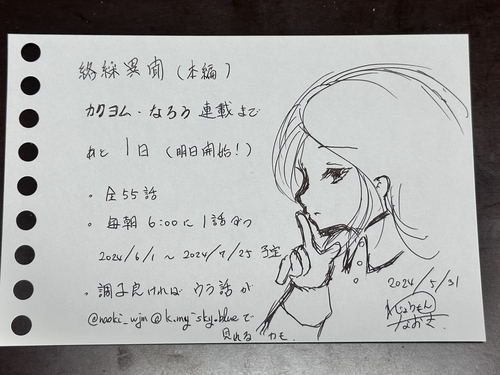 終綵異聞(本編)
カクヨム・なろう連載まで
あと 1日(明日開始!)
・全55話
・毎朝 6:00に1話ずつ
2024/6/1 ~ 2024/7/25 予定
・調子良ければウラ話が
@naoki_wjm@k.my-sky.blueで
見れるかも。
2024/5/31
なおき